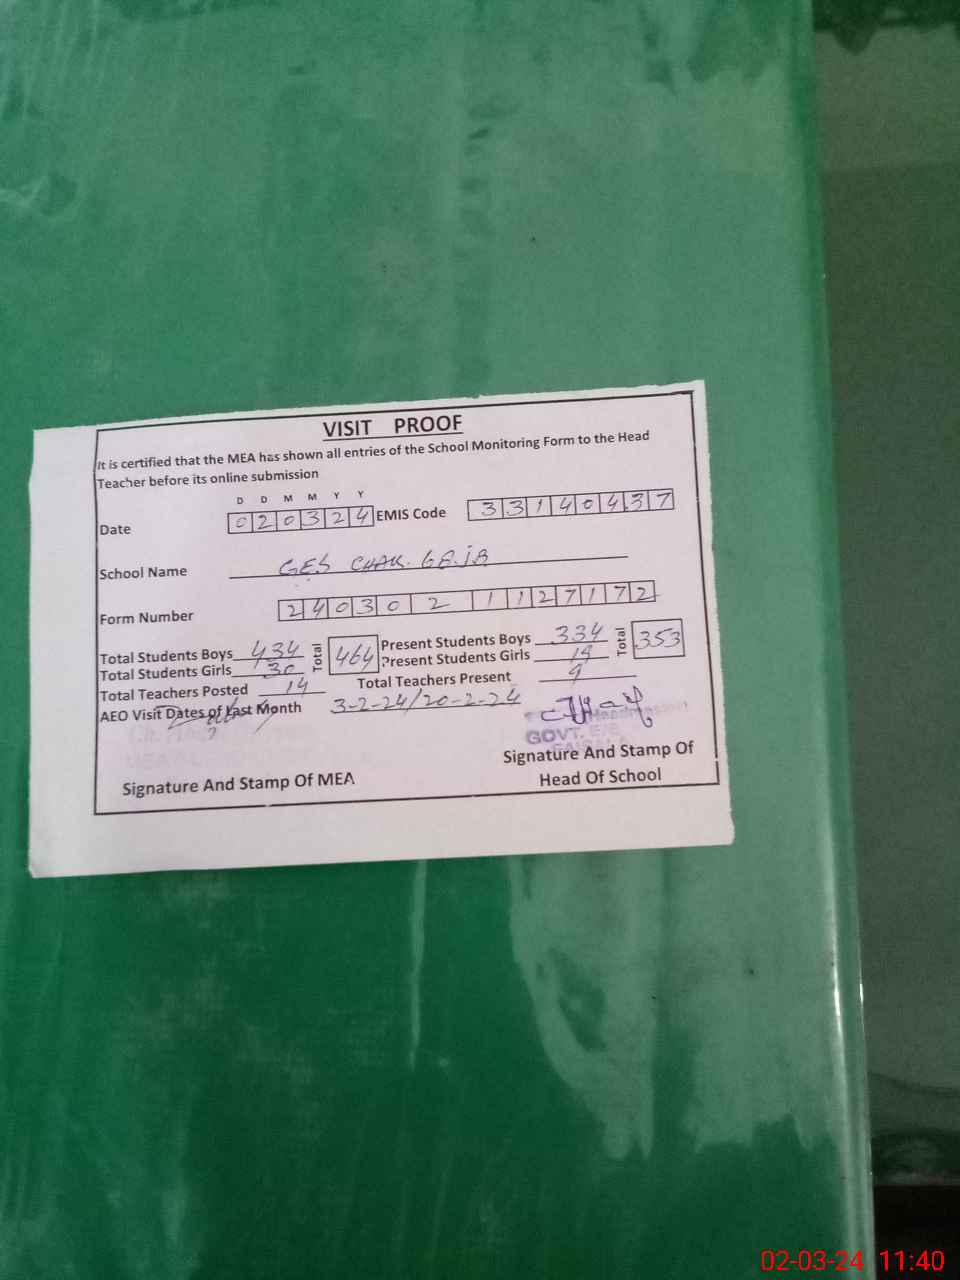 VISIT PROOF
It is certified that the MEA has shown all entries of the School Monitoring Form to the Head
Teacher before its online submission
D D M M Y Y
Date 020324 EMIS Code 33140437
School Name GES CHAK. 68.JB
Form Number 240302 1127172
Total Students Boys 434 Total 464 Present Students Boys 334 Total 353
Total Students Girls 30 Present Students Girls 19
Total Teachers Posted 14 Total Teachers Present 9
AEO Visit Dates of Last Month 3-2-24/20-2-24
Headmaster
GOVT. E/S
Signature And Stamp Of MEA
Signature And Stamp Of
Head Of School
02-03-24 11:40